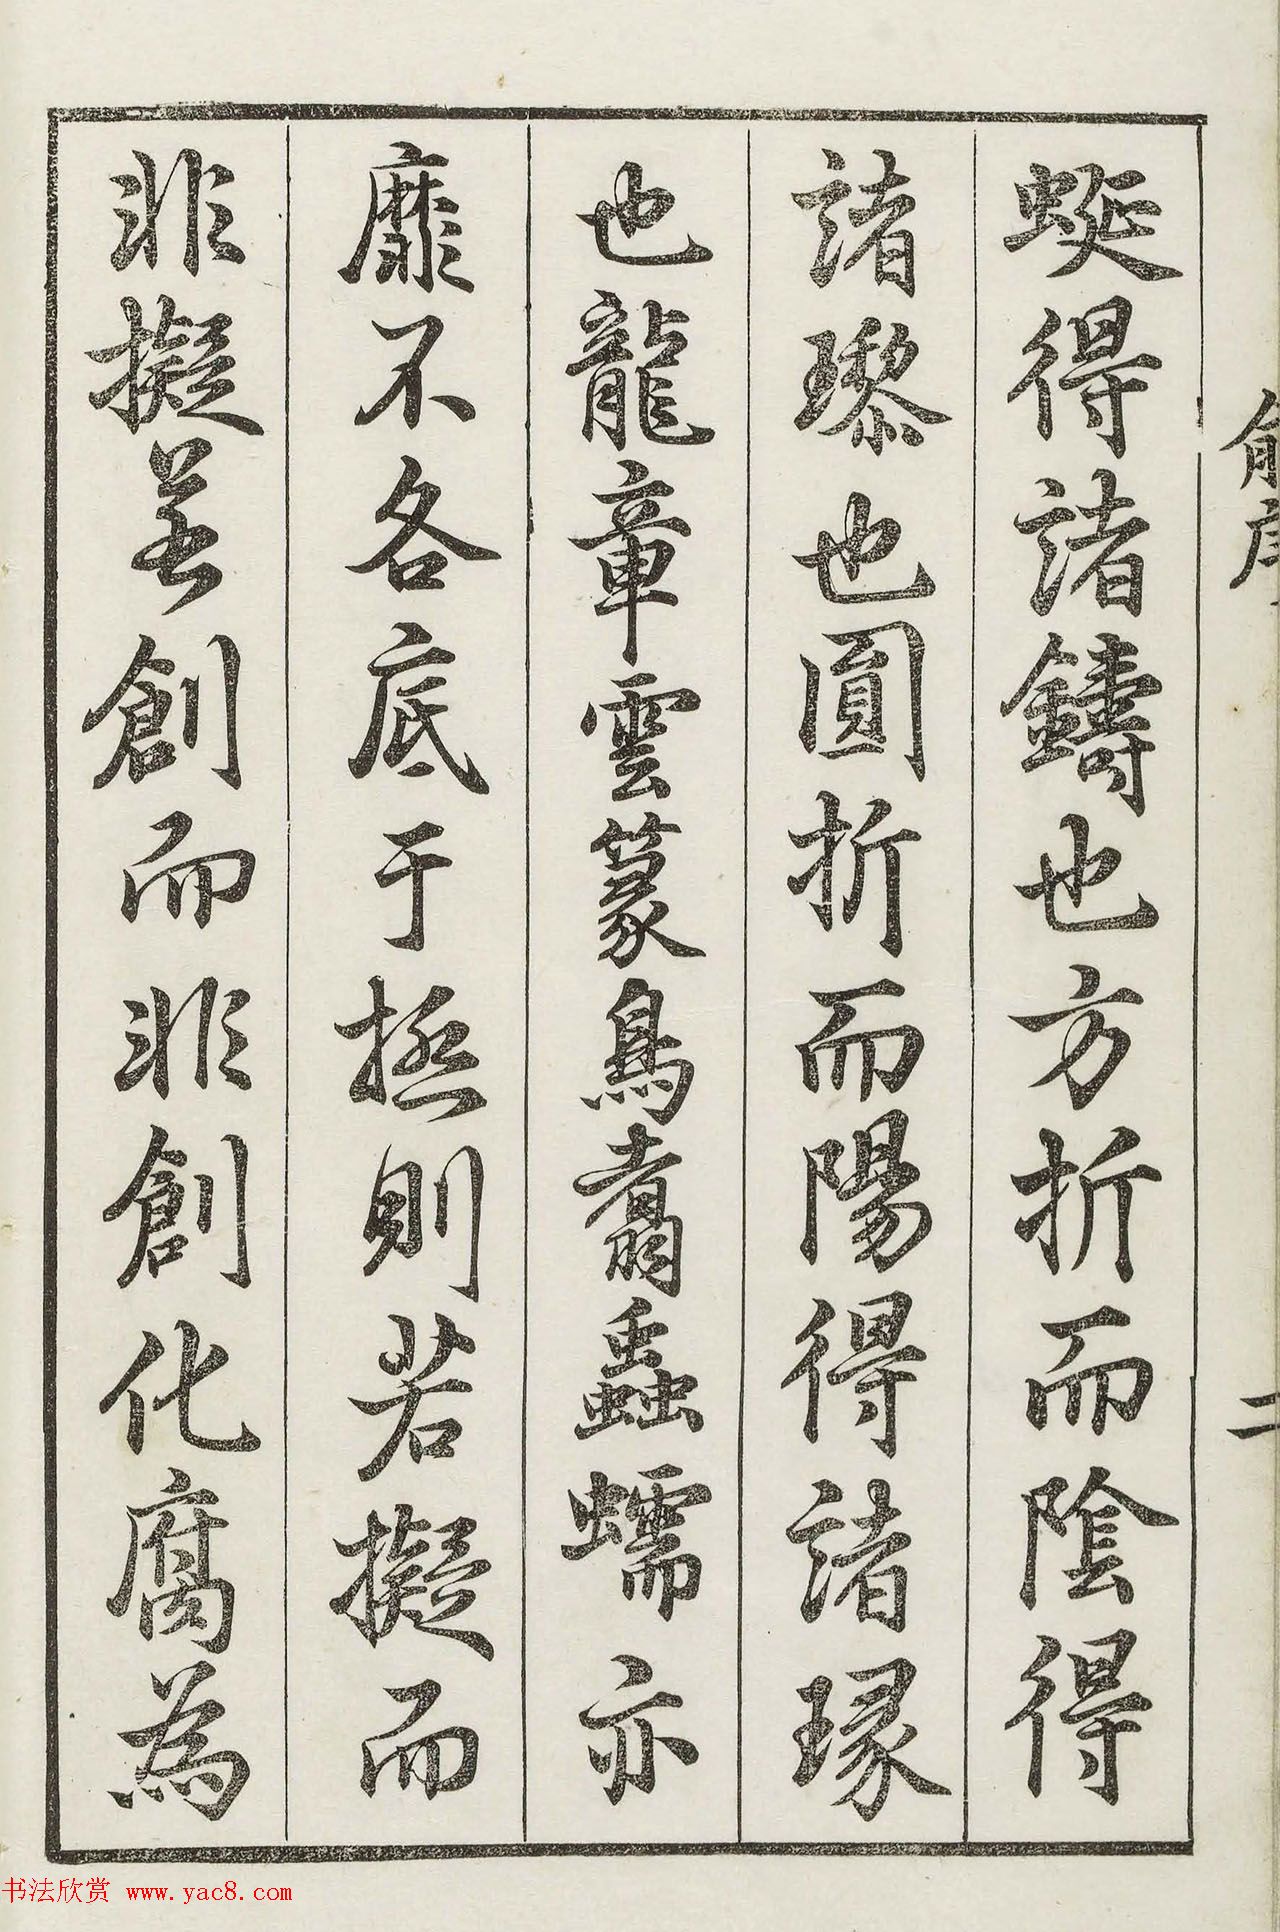 蜒得諸鑄也方折而陰得
諸瓈也圓折而陽得諸瑑
也龍章雲篆鳥翥蟲蠕亦
靡不各底于極則若擬而
非擬若創而非創化腐為
俞序
二
书法欣赏 www.yac8.com